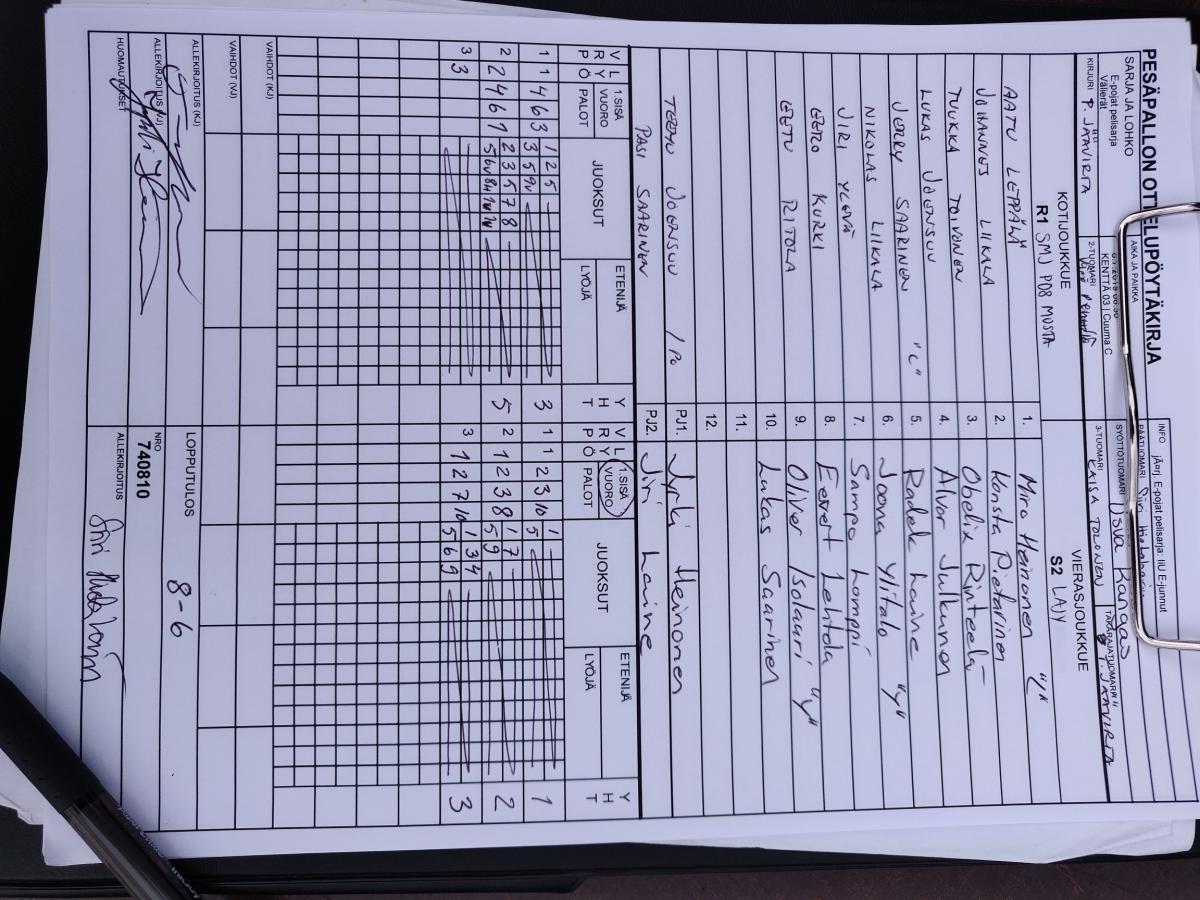 PESÄPALLON OTTELUPÖYTÄKIRJA
INFO järj. E-pojat pelisarja: IIU E-junnut
SARJA JA LOHKO
E-pojat pelisarja
Välierät
AIKA JA PAIKKA
KENTTÄ 03 | Cuuma C
PÄÄTUOMARI Siiri
SYÖTTÖTUOMARI Kangas
TAKARAJATUOMARI P. JAAVIRTA
KIRJURI P. JÄÄVIRTA
2-TUOMARI
3-TUOMARI KAISA TOLONEN
KOTIJOUKKUE
VIERASJOUKKUE
R1 SMJ P08 MUSTA
S2 LAJY
AATU LEPPÄLÄ 1. Miro Heinonen
JOHANNES LIIKALA 2. Konsta Pietarinen
TUUKKA TOIVONEN 3. Obelix Rinteelä
LUKAS JOENSUU 4. Alvar Julkunen
JERRY SAARINEN "C" 5. Radek Laine
NIKOLAS LIIKALA 6. Joona Ylitalo "V"
JIRI YLEVÄ 7. Sampo Lomppi
EERO KURKI 8. Eevert Lehtola
EETU RITOLA 9. Oliver Isolauri "V"
10. Lukas Saarinen
11.
12.
TEEMU JOENSUU / PO PJ1. Jyrki Heinonen
PASI SAARINEN PJ2. Jiri Laine
V R P L Y Ö 1.SISÄ VUORO PALOT JUOKSUT ETENIJÄ LYÖJÄ Y H T V R P L Y Ö 1.SISÄ VUORO PALOT JUOKSUT ETENIJÄ LYÖJÄ Y H T
1 1 4 6 3 1 2 5 3 1 1 2 3 10 1 1
3 5 9V 5
2 2 4 6 1 2 3 5 7 8 5 2 1 2 3 8 1 7 2
5 9
3 3 3 1 2 7 10 1 3 4 3
5 6 9
VAIHDOT (KJ)
VAIHDOT (VJ)
ALLEKIRJOITUS (KJ)
LOPPUTULOS 8-6
ALLEKIRJOITUS (VJ)
NRO
740810
HUOMAUTUKSET
ALLEKIRJOITUS